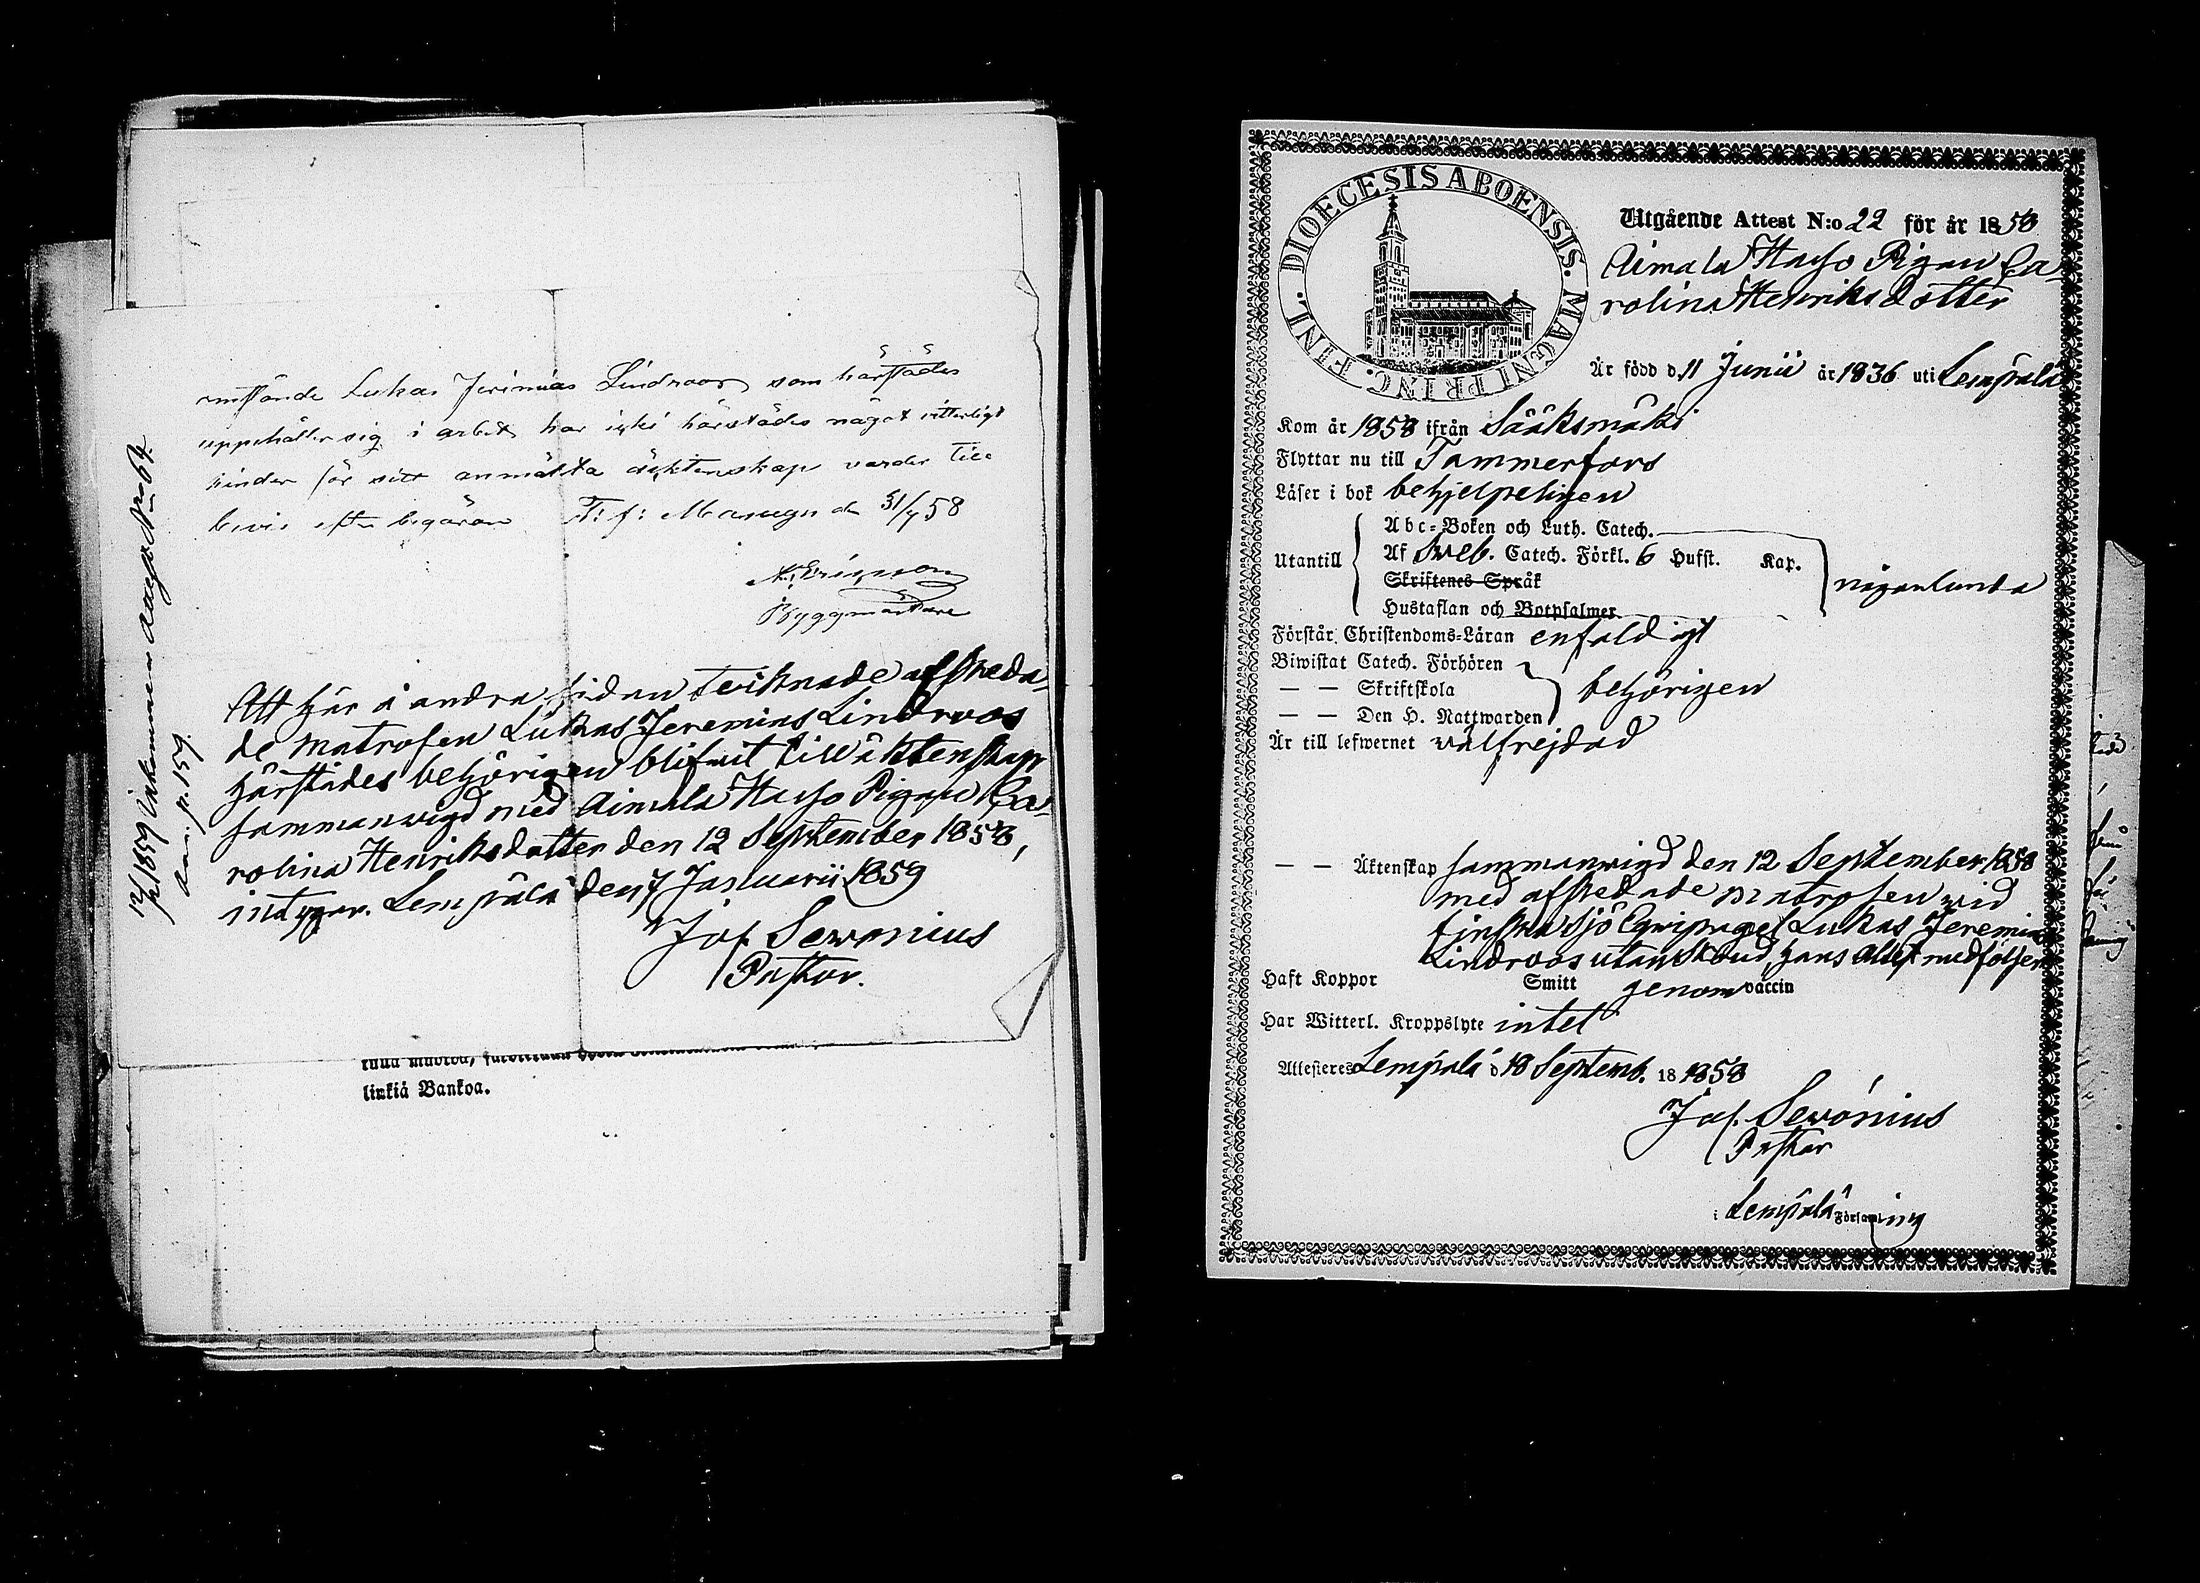 omstånde Lukas Jerimias Lindroos som härstädes
uppehåller sig i arbet har icke härstädes något vitterligt
hinder för sitt anmälta äcktenskap varder till
bevis efter begäran T: f: Masugn de 31/7 58
N: Ericson
Byggmästare
Att här å andra sidan tecknade afskeda-
de Matrosen Lukas Jeremias Lindroos
härstädes behörigen blifvit till äktenskap
sammanvigd med Aimala Hauso Pigan Ca-
rolina Henriksdotter den 12 September 1858,
intygar. Lempäälä den 7 Januarii 1859
Jos. Sevonius
Pastor.
12/2 1859 Nro 64.
p. 159.
linkiä Bankoa.
DIOECESIS ABOENSIS. MAGNI PRINC. FINL.
Utgående Attest N:o 22 för år 1858
Aimala Hauso Pigan Ca-
rolina Henriksdotter
Är född d. 11 Junii år 1836 uti Lempälä
Kom år 1858 ifrån Sääksmäki
Flyttar nu till Tammerfors
Läser i bok behjelpeligen
Utantill
Abc-Boken och Luth. Catech.
Af Sveb. Catech. Förkl. 6 Hufst. Kap.
Skriftenes Språk
Hustaflan och Botpsalmer
någorlunda
Förstår Christendoms-Läran enfaldigt
Biwistat Catech. Förhören
— — Skriftskola
behörigen
— — Den H. Nattwarden
Är till lefwernet välfrejdad
— — Äktenskap sammanvigd den 12 September 1858
med afskedade Matrosen vid
finska Sjö Equipaget Lukas Jeremias
Lindroos utan stånd, hans attest medföljer
Haft Koppor Smitt genom vaccin
Har Witterl. Kroppslyte intet
Attesteres Lempälä d 18 Septemb. 18 1858
Jos. Sevónius
Pastor
i Lempälä Församling